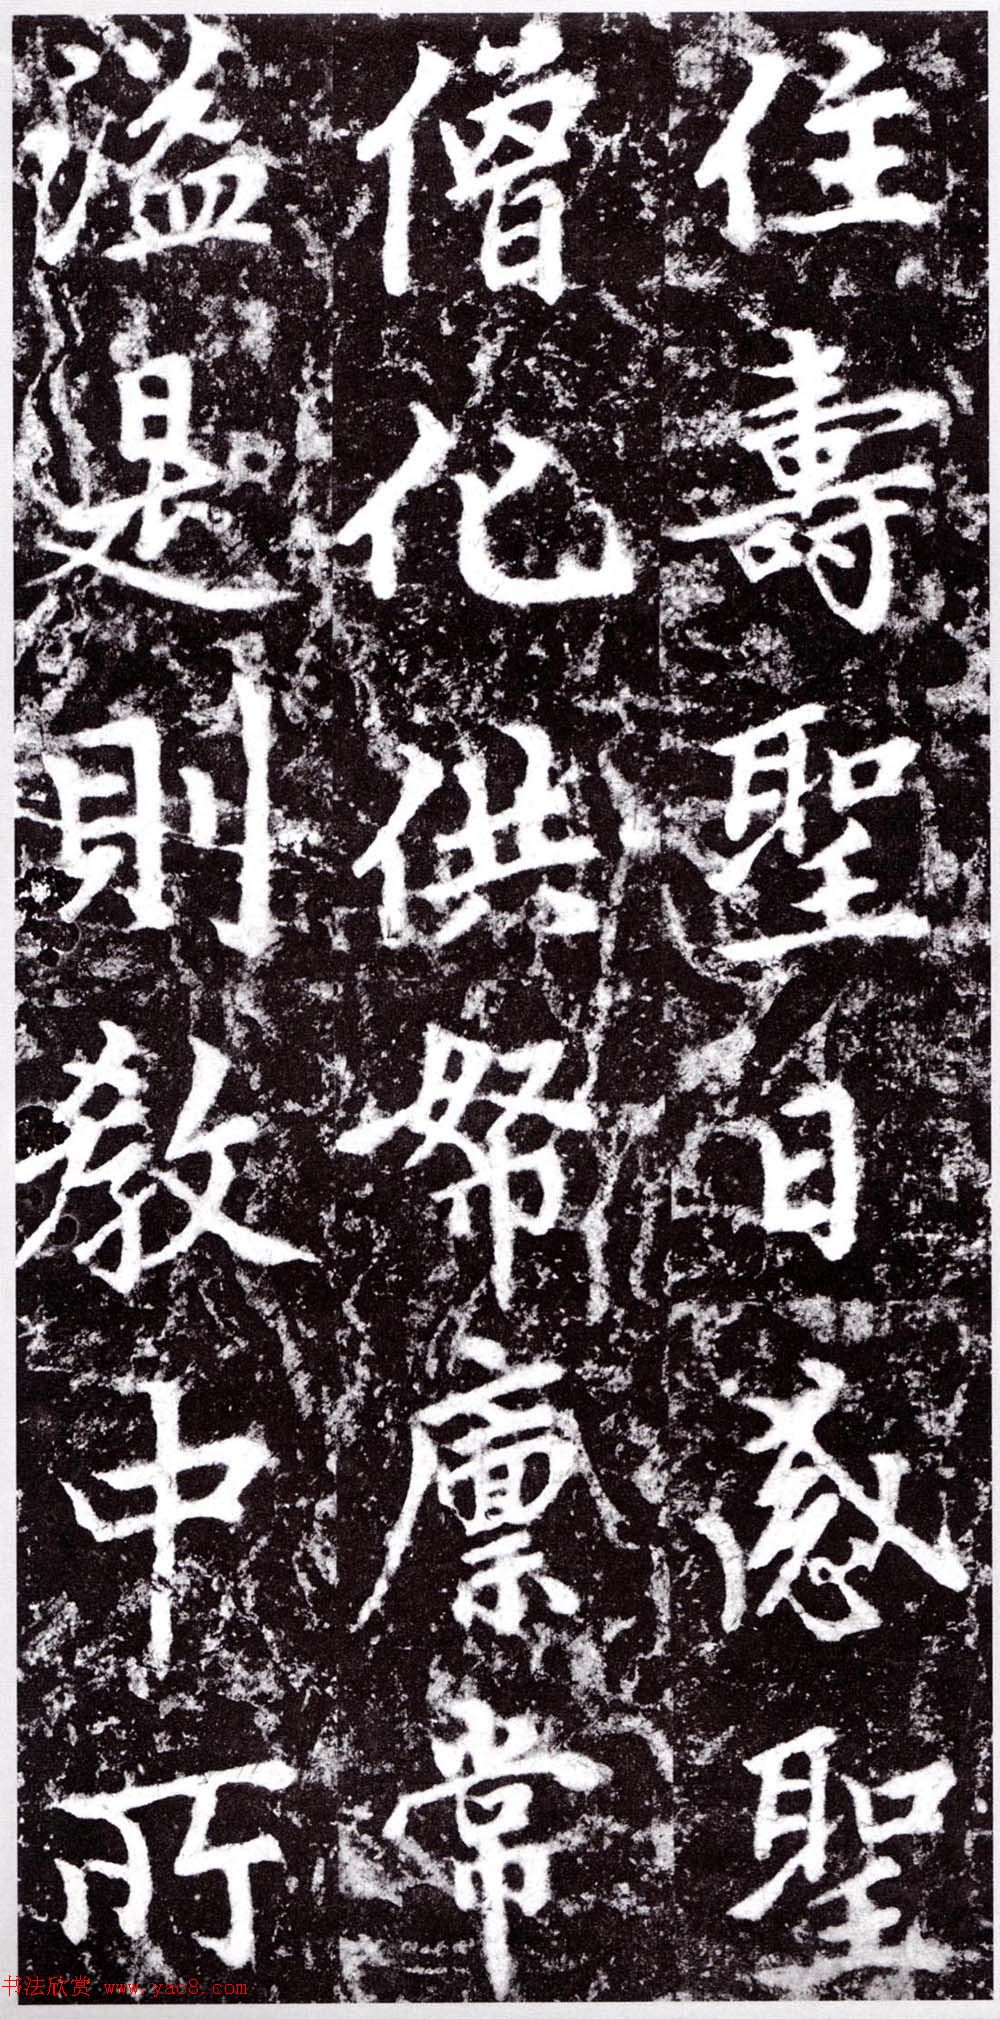 住壽聖目感聖
僧化供帑廪常
溢是則教中所
书法欣赏 www.yac8.com